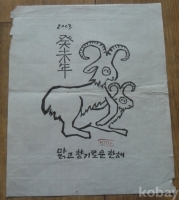 2003
癸未年
맑고 향기로운 한해
kobay